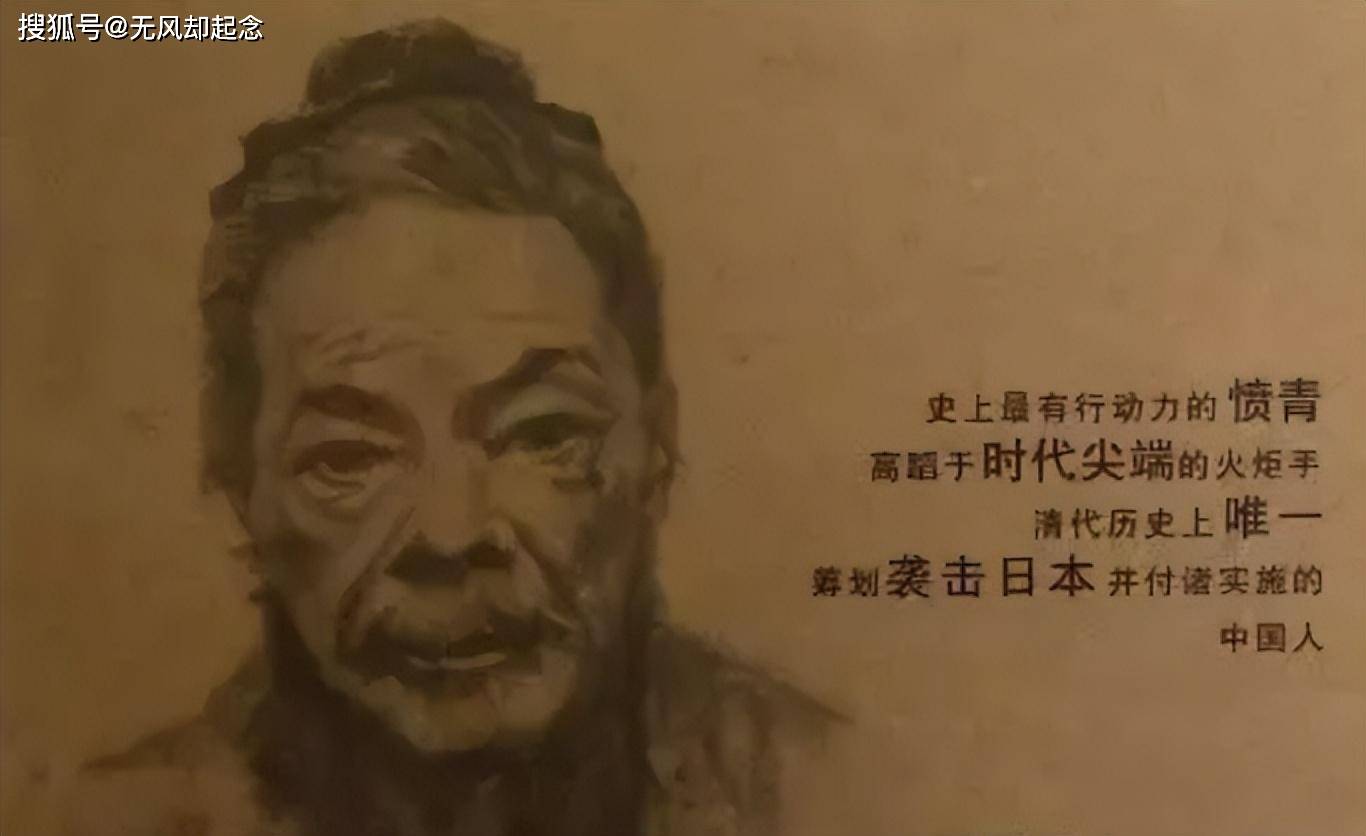 搜狐号@无风却起念
史上最有行动力的愤青
高蹈于时代尖端的火炬手
清代历史上唯一
筹划袭击日本并付诸实施的
中国人